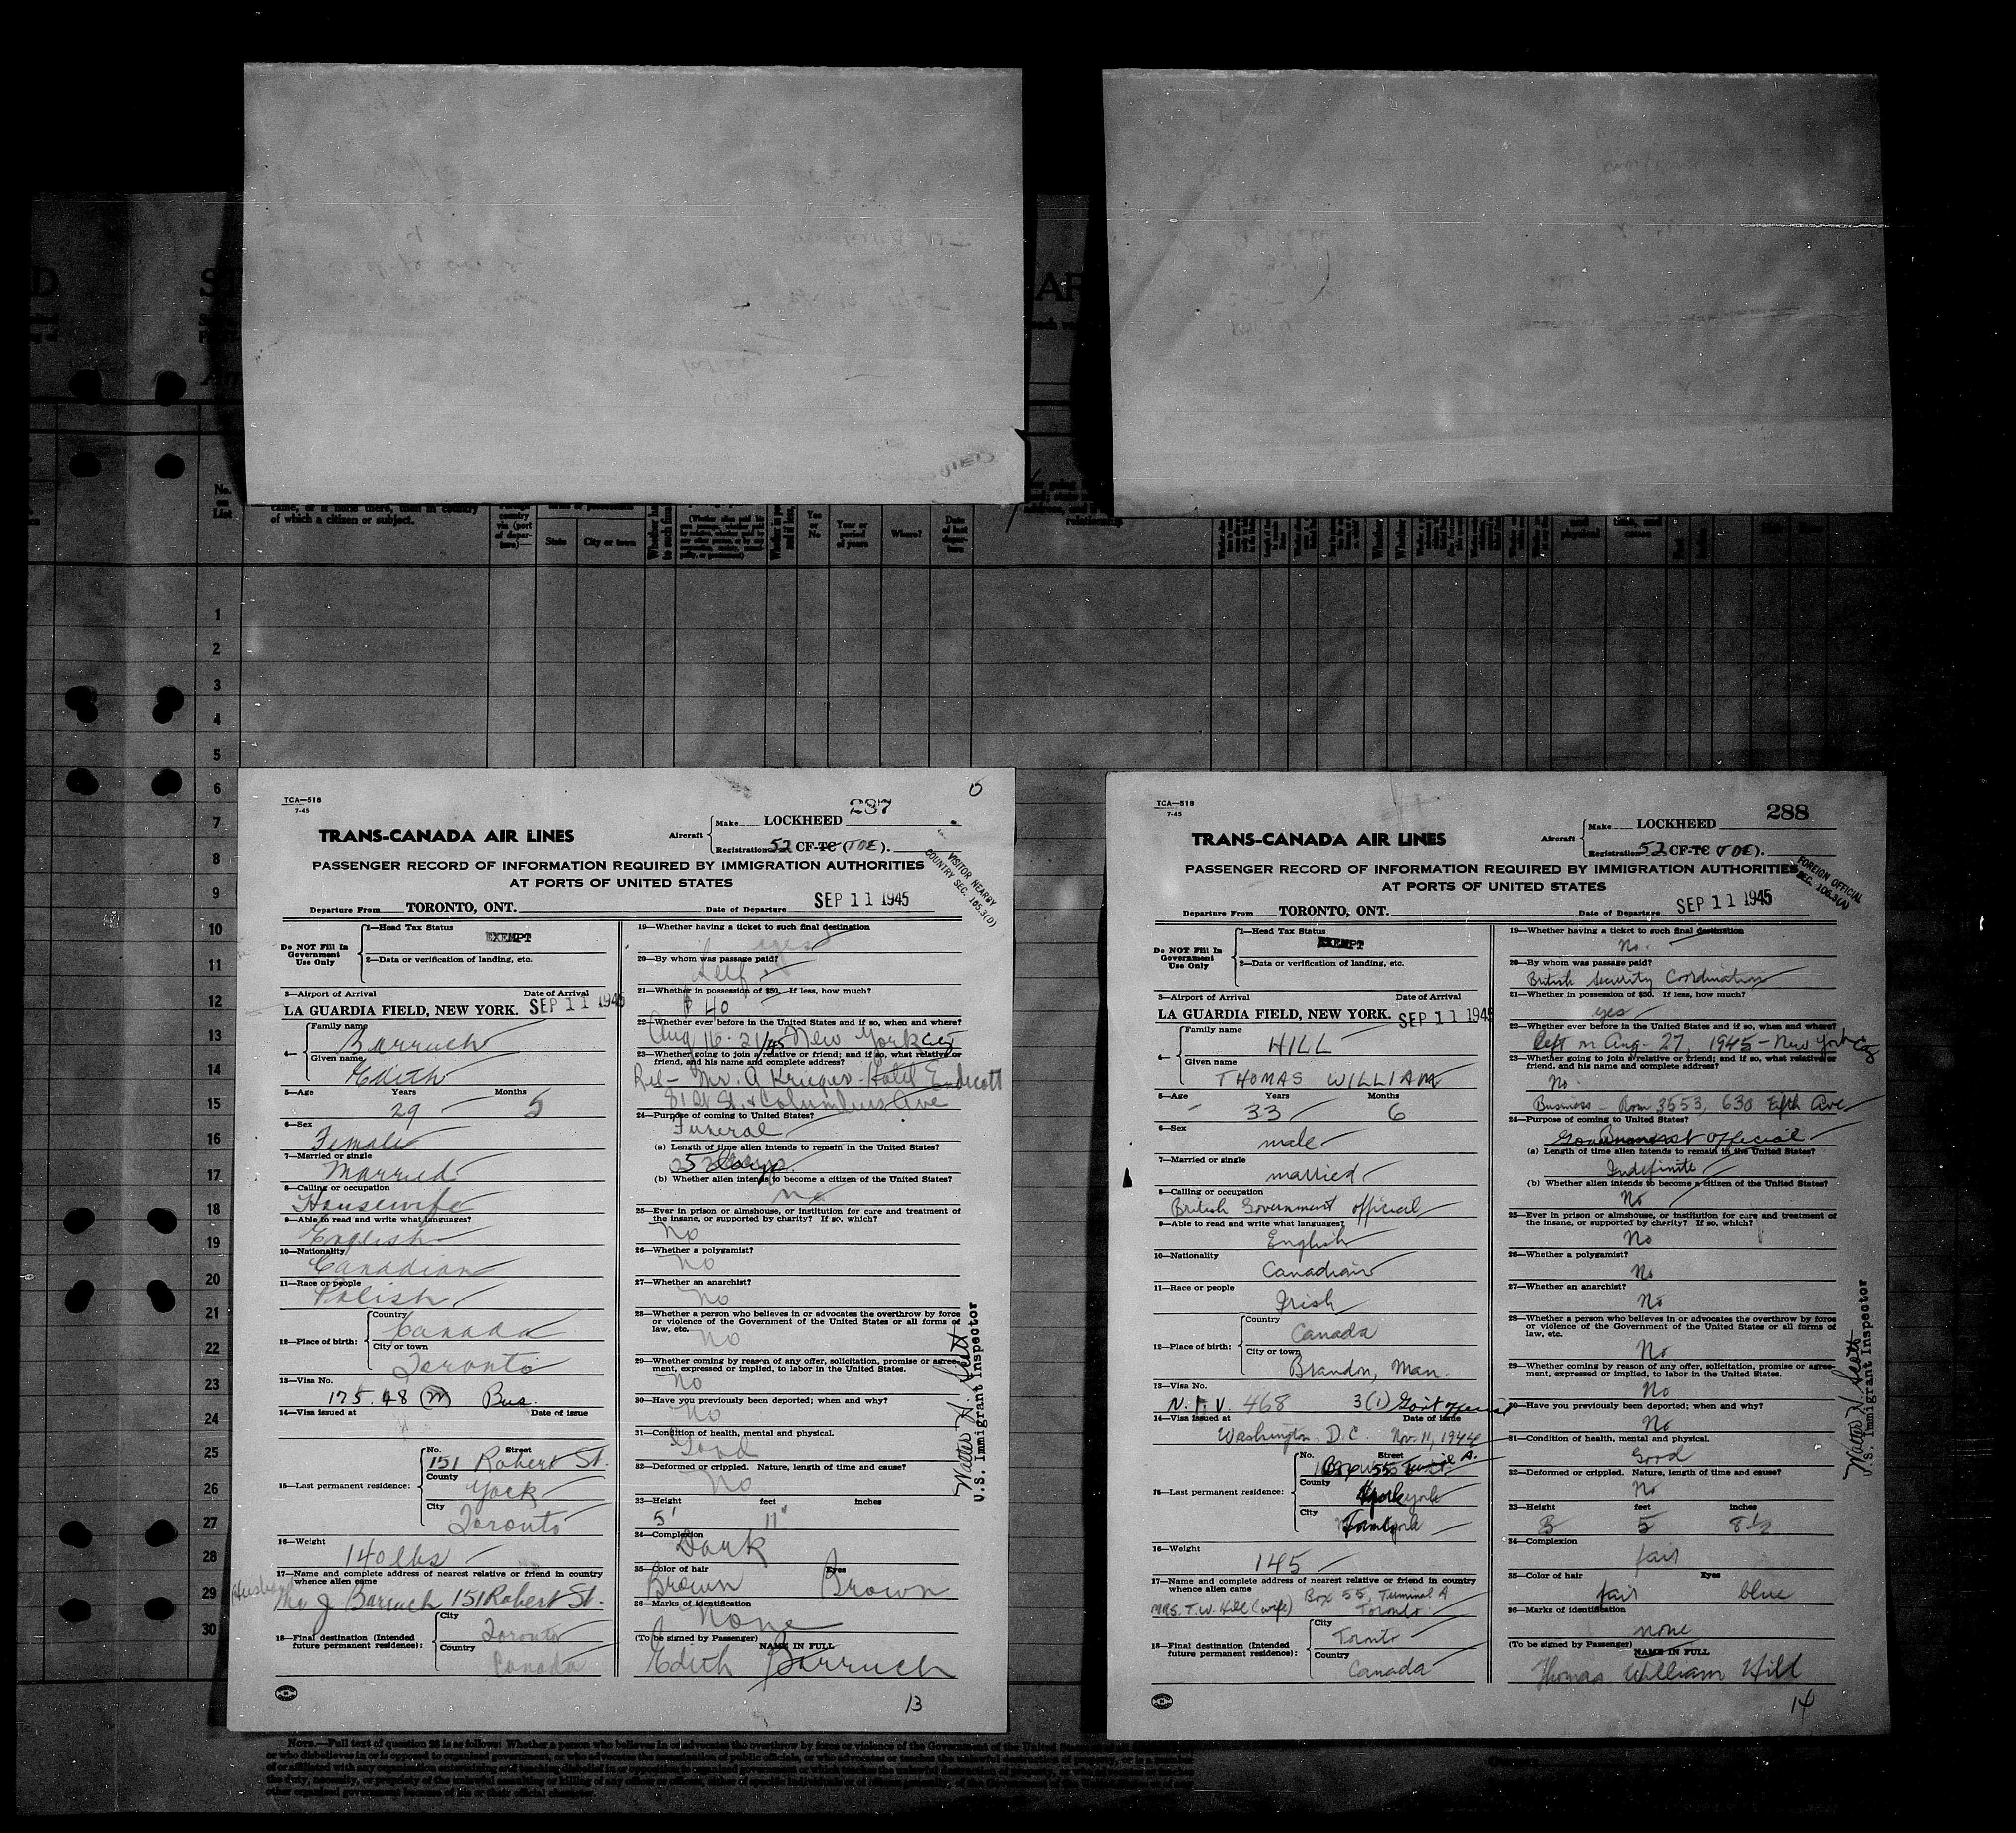 No. on List
came, or if none there, then in country
of which a citizen or subject.
State
City or town
Yes or No
Year or period of years
Where?
Date of last departure
relationship
1
2
3
4
5
6
7
8
9
10
11
12
13
14
15
16
17
18
19
20
21
22
23
24
25
26
27
28
29
30
TCA—518
7-45
287
TRANS-CANADA AIR LINES
Aircraft
Make LOCKHEED
Registration 52 CF-TC (TOE).
PASSENGER RECORD OF INFORMATION REQUIRED BY IMMIGRATION AUTHORITIES
AT PORTS OF UNITED STATES
VISITOR NEARBY
COUNTRY SEC. 165.3(D)
Departure From TORONTO, ONT. Date of Departure SEP 11 1945
Do NOT Fill In
Government
Use Only
1—Head Tax Status EXEMPT
2—Data or verification of landing, etc.
3—Airport of Arrival Date of Arrival
LA GUARDIA FIELD, NEW YORK. SEP 11 1945
4—
Family name
Barruch
Given name
Edith
5—Age Years Months
29 5
6—Sex
Female
7—Married or single
Married
8—Calling or occupation
Housewife
9—Able to read and write what languages?
English
10—Nationality
Canadian
11—Race or people
Polish
12—Place of birth:
Country
Canada
City or town
Toronto
13—Visa No.
175.48 (W) Bus.
14—Visa issued at Date of issue
15—Last permanent residence:
No. Street
151 Robert St.
County
York
City
Toronto
16—Weight
140 lbs
17—Name and complete address of nearest relative or friend in country
whence alien came
Husband
Mr J Barruch 151 Robert St.
18—Final destination (Intended
future permanent residence):
City
Toronto
Country
Canada
19—Whether having a ticket to such final destination
yes
20—By whom was passage paid?
Self
21—Whether in possession of $50. If less, how much?
$ 40
22—Whether ever before in the United States and if so, when and where?
Aug 16-21/45 New York City
23—Whether going to join a relative or friend; and if so, what relative or
friend, and his name and complete address?
Rel— Mr. A Krieger - Hotel Endicott
81st St. & Columbus Ave
24—Purpose of coming to United States?
Funeral
(a) Length of time alien intends to remain in the United States?
5 days
(b) Whether alien intends to become a citizen of the United States?
no
25—Ever in prison or almshouse, or institution for care and treatment of
the insane, or supported by charity? If so, which?
No
26—Whether a polygamist?
No
27—Whether an anarchist?
No
28—Whether a person who believes in or advocates the overthrow by force
or violence of the Government of the United States or all forms of
law, etc.
No
29—Whether coming by reason of any offer, solicitation, promise or agree-
ment, expressed or implied, to labor in the United States.
No
30—Have you previously been deported; when and why?
No
31—Condition of health, mental and physical.
Good
32—Deformed or crippled. Nature, length of time and cause?
No
33—Height feet inches
5' 11"
34—Complexion
Dark
35—Color of hair Eyes
Brown Brown
36—Marks of identification
None
(To be signed by Passenger) NAME IN FULL
Edith Barruch
13
Walter H. Scott
U.S. Immigrant Inspector
TCA—518
7-45
288
TRANS-CANADA AIR LINES
Aircraft
Make LOCKHEED
Registration 52 CF-TC (TOE).
PASSENGER RECORD OF INFORMATION REQUIRED BY IMMIGRATION AUTHORITIES
AT PORTS OF UNITED STATES
FOREIGN OFFICIAL
SEC. 106.3(A)
Departure From TORONTO, ONT. Date of Departure SEP 11 1945
Do NOT Fill In
Government
Use Only
1—Head Tax Status EXEMPT
2—Data or verification of landing, etc.
3—Airport of Arrival Date of Arrival
LA GUARDIA FIELD, NEW YORK. SEP 11 1945
4—
Family name
HILL
Given name
THOMAS WILLIAM
5—Age Years Months
33 6
6—Sex
male
7—Married or single
married
8—Calling or occupation
British Government official
9—Able to read and write what languages?
English
10—Nationality
Canadian
11—Race or people
Irish
12—Place of birth:
Country
Canada
City or town
Brandon, Man.
13—Visa No.
N.I.V. 468 3(1) Gov't official
14—Visa issued at Date of issue
Washington, D.C. Nov. 11, 1944
15—Last permanent residence:
No. Street
Box 55 Terminal A.
County
York
City
Toronto
16—Weight
145
17—Name and complete address of nearest relative or friend in country
whence alien came
Box 55, Terminal A
MRS. T.W. Hill (wife) Toronto
18—Final destination (Intended
future permanent residence):
City
Toronto
Country
Canada
19—Whether having a ticket to such final destination
No.
20—By whom was passage paid?
British Security Coordination
21—Whether in possession of $50. If less, how much?
yes
22—Whether ever before in the United States and if so, when and where?
left on Aug. 27, 1945 - New York City
23—Whether going to join a relative or friend; and if so, what relative or
friend, and his name and complete address?
No.
Business - Room 3553, 630 Fifth Ave.
24—Purpose of coming to United States?
Government official
(a) Length of time alien intends to remain in the United States?
Indefinite
(b) Whether alien intends to become a citizen of the United States?
No
25—Ever in prison or almshouse, or institution for care and treatment of
the insane, or supported by charity? If so, which?
No
26—Whether a polygamist?
No
27—Whether an anarchist?
No
28—Whether a person who believes in or advocates the overthrow by force
or violence of the Government of the United States or all forms of
law, etc.
No
29—Whether coming by reason of any offer, solicitation, promise or agree-
ment, expressed or implied, to labor in the United States.
No
30—Have you previously been deported; when and why?
No
31—Condition of health, mental and physical.
Good
32—Deformed or crippled. Nature, length of time and cause?
No
33—Height feet inches
5 8½
34—Complexion
fair
35—Color of hair Eyes
fair blue
36—Marks of identification
none
(To be signed by Passenger) NAME IN FULL
Thomas William Hill
14
Walter H. Scott
U.S. Immigrant Inspector
NOTE.—Full text of question 28 is as follows: Whether a person who believes in or advocates the overthrow by force or violence of the Government of the United States
or who disbelieves in or is opposed to organized government, or who advocates the assassination of public officials, or who advocates or teaches the unlawful destruction of property, or is a member
of or affiliated with any organization entertaining and teaching disbelief in or opposition to organized government or which teaches the unlawful destruction of property, or who advocates or teaches
the duty, necessity, or propriety of the unlawful assaulting or killing of any officer or officers, either of specific individuals or of officers generally, of the Government of the United States or of any
other organized government because of his or their official character.